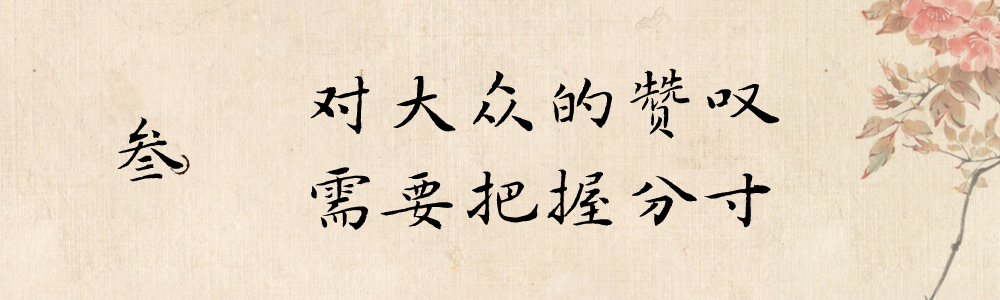 叁。
对大众的赞叹
需要把握分寸